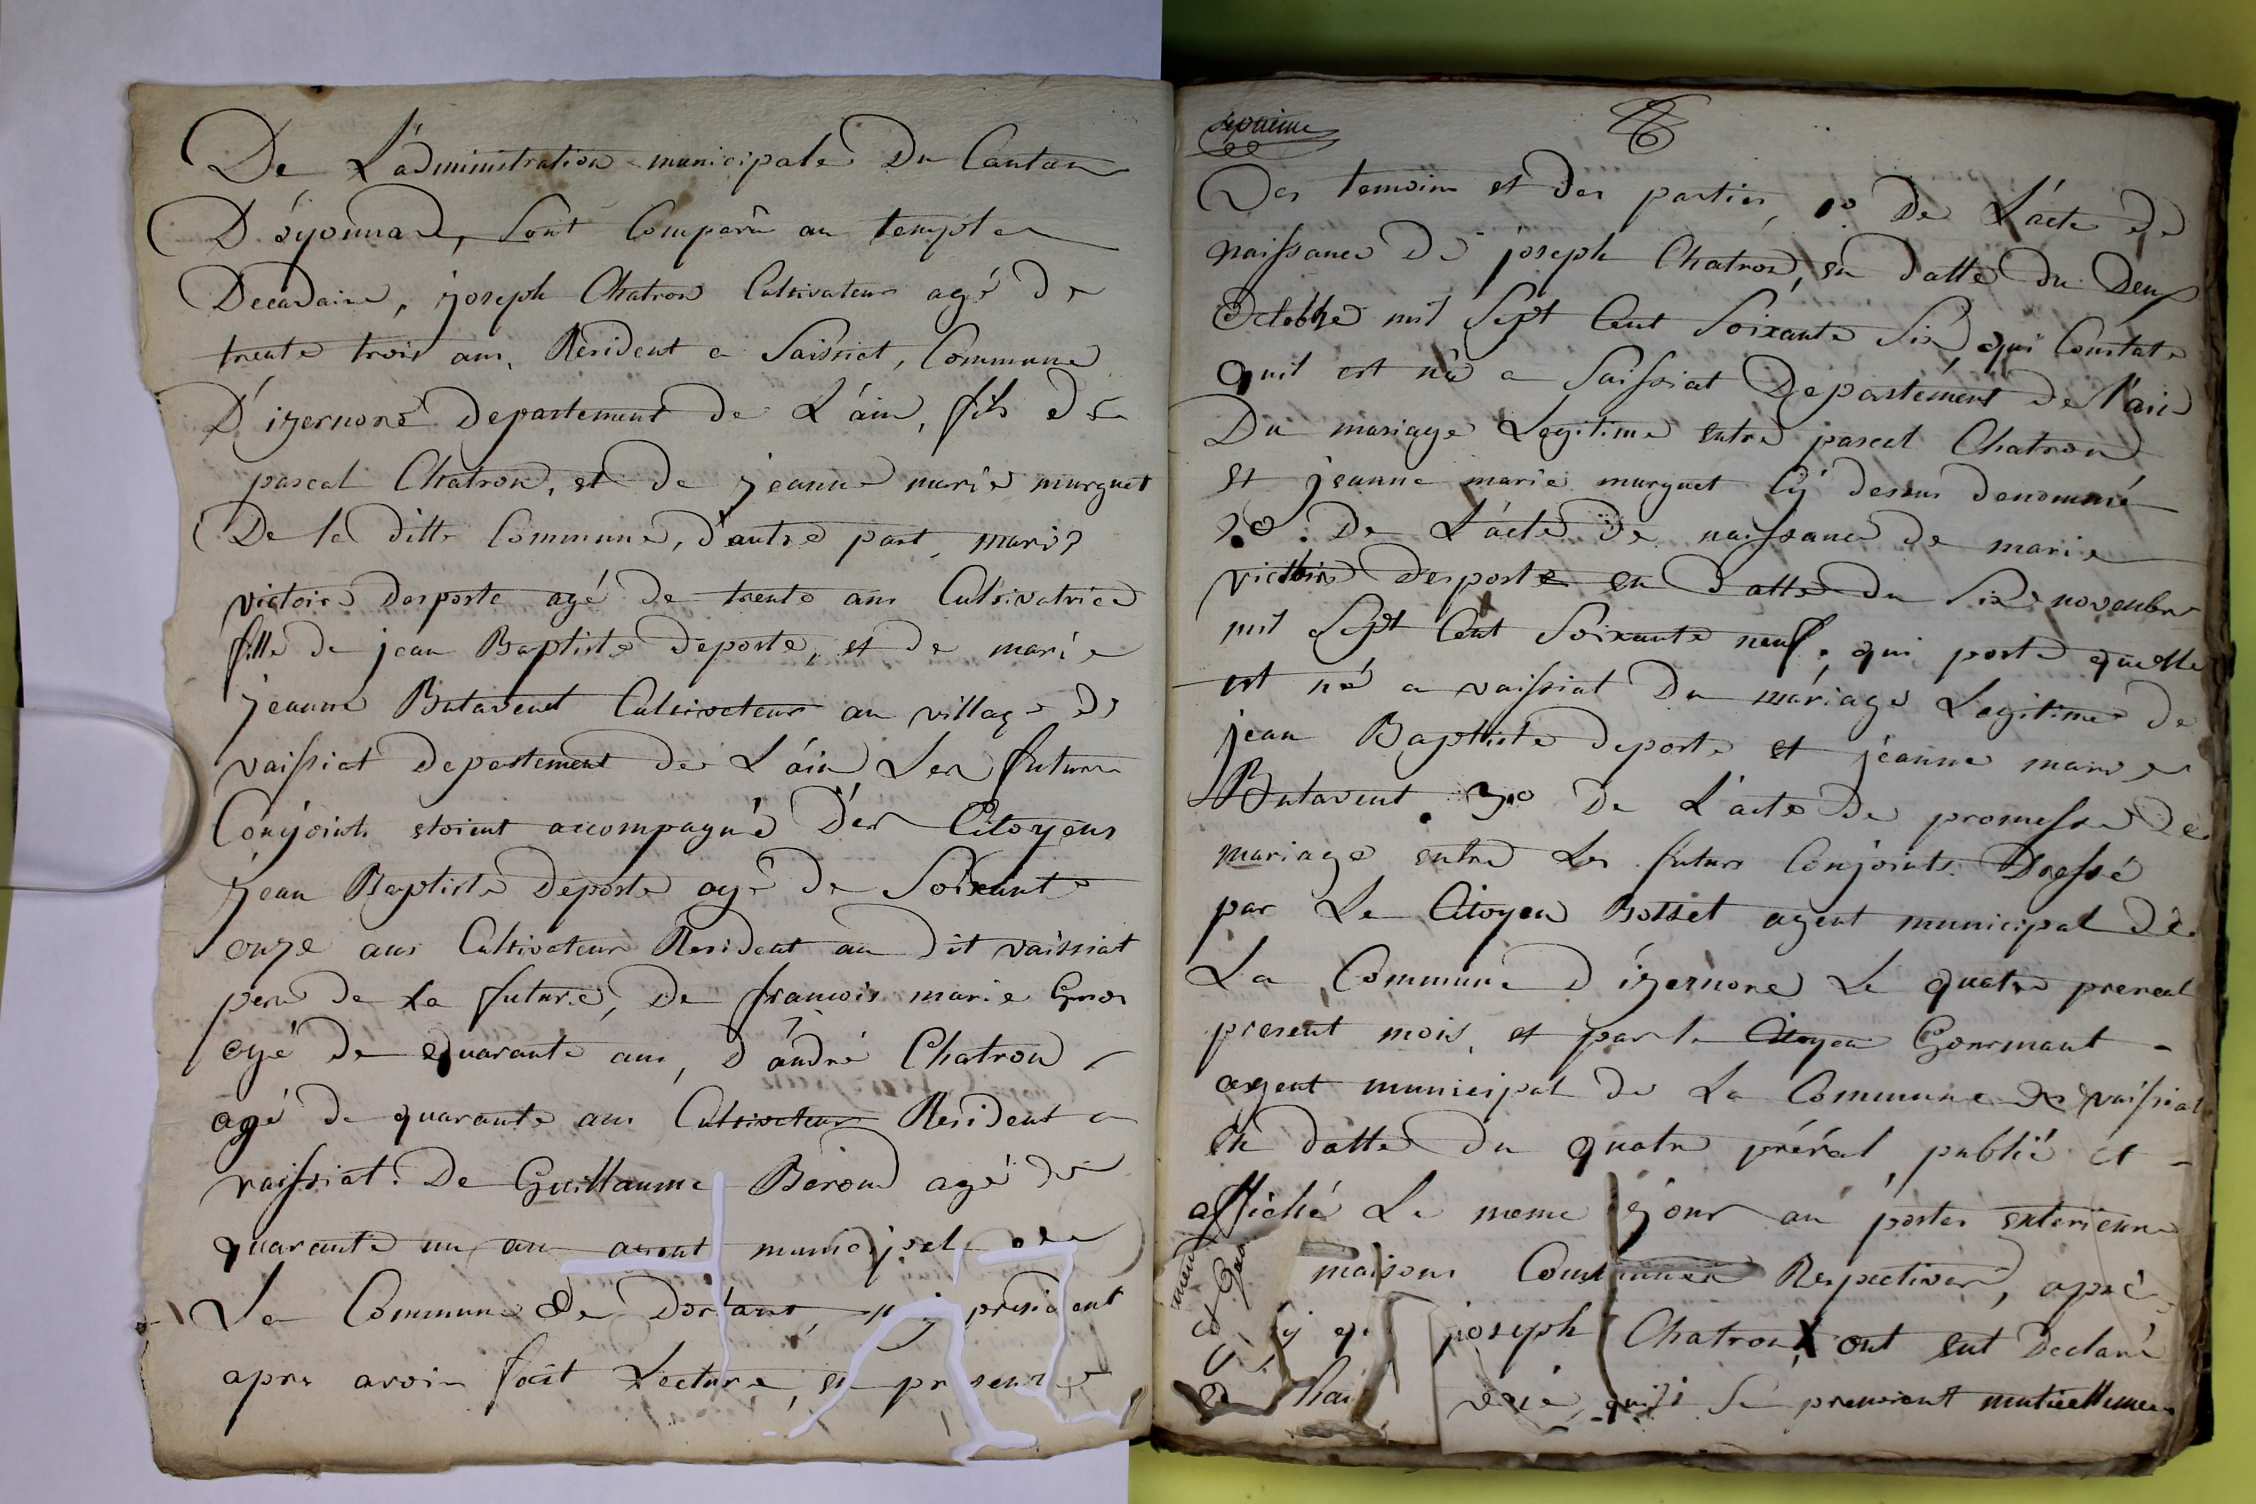 De L'administration municipale Du Canton
D'öyonnad, sont Comparu au temple
Decadaire, joseph Chatron Cultivateur agé de
trente trois ans, Resident a Saissiat, Commune
D'izernore departement de L'ain, fils de
pascal Chatron, et de jeanne marie murguet
De la ditte Commune, d'autre part, marie
victoire desporte agé de trente ans Cultivatrice
fille de jean Baptiste deporte, et de marie
jeanne Butavent Cultivateur au village de
vaissiat departement de L'ain Les futurs
Conjoints etoient accompagné Des Citoyens
jean Baptiste Deporte agé de Soixante
onze ans Cultivateur Resident au dit vaissiat
pere de la future, de francois marie Gros
agé de Quarante ans, D'andré Chatron
agé de quarante ans Cultivateur Resident a
vaissiat. De Guillaume Beroud agé de
quarante un an agent municipal de
La Commune de Dortant, president
apres avoir fait Lecture, en presence
septieme
Des temoins et des parties, 1º De L'acte de
naissance de joseph Chatron, en datte du Deux
Octobre mil Sept Cent Soixante Six, qui Constate
quil est né a Saissiat Departement de l'ain
Du mariage Legitime entre pascal Chatron
et jeanne marie murguet cy dessus denommé
2º. De L'acte de naissance de marie
victoire desporte en datte du Six novembre
mil Sept Cent Soixante neuf, qui porte quelle
est né a vaissiat Du mariage Legitime de
jean Baptiste deporte et jeanne marie
Butavent. 3º De L'acte de promesse de
mariage entre Les futurs Conjoints Dressé
par Le Citoyen Bottet agent municipal de
La Commune D'izernore Le quatre prereal
present mois, et par le Citoyen Gourmant
agent municipal de La Commune de vaissiat
en datte du quatre préréal publié et
affiché Le meme jour au portes exterieure
maisons Communes Respectives, aprè
joseph Chatron ont eut Declaré
hai voie quils Se prenoient mutuellement